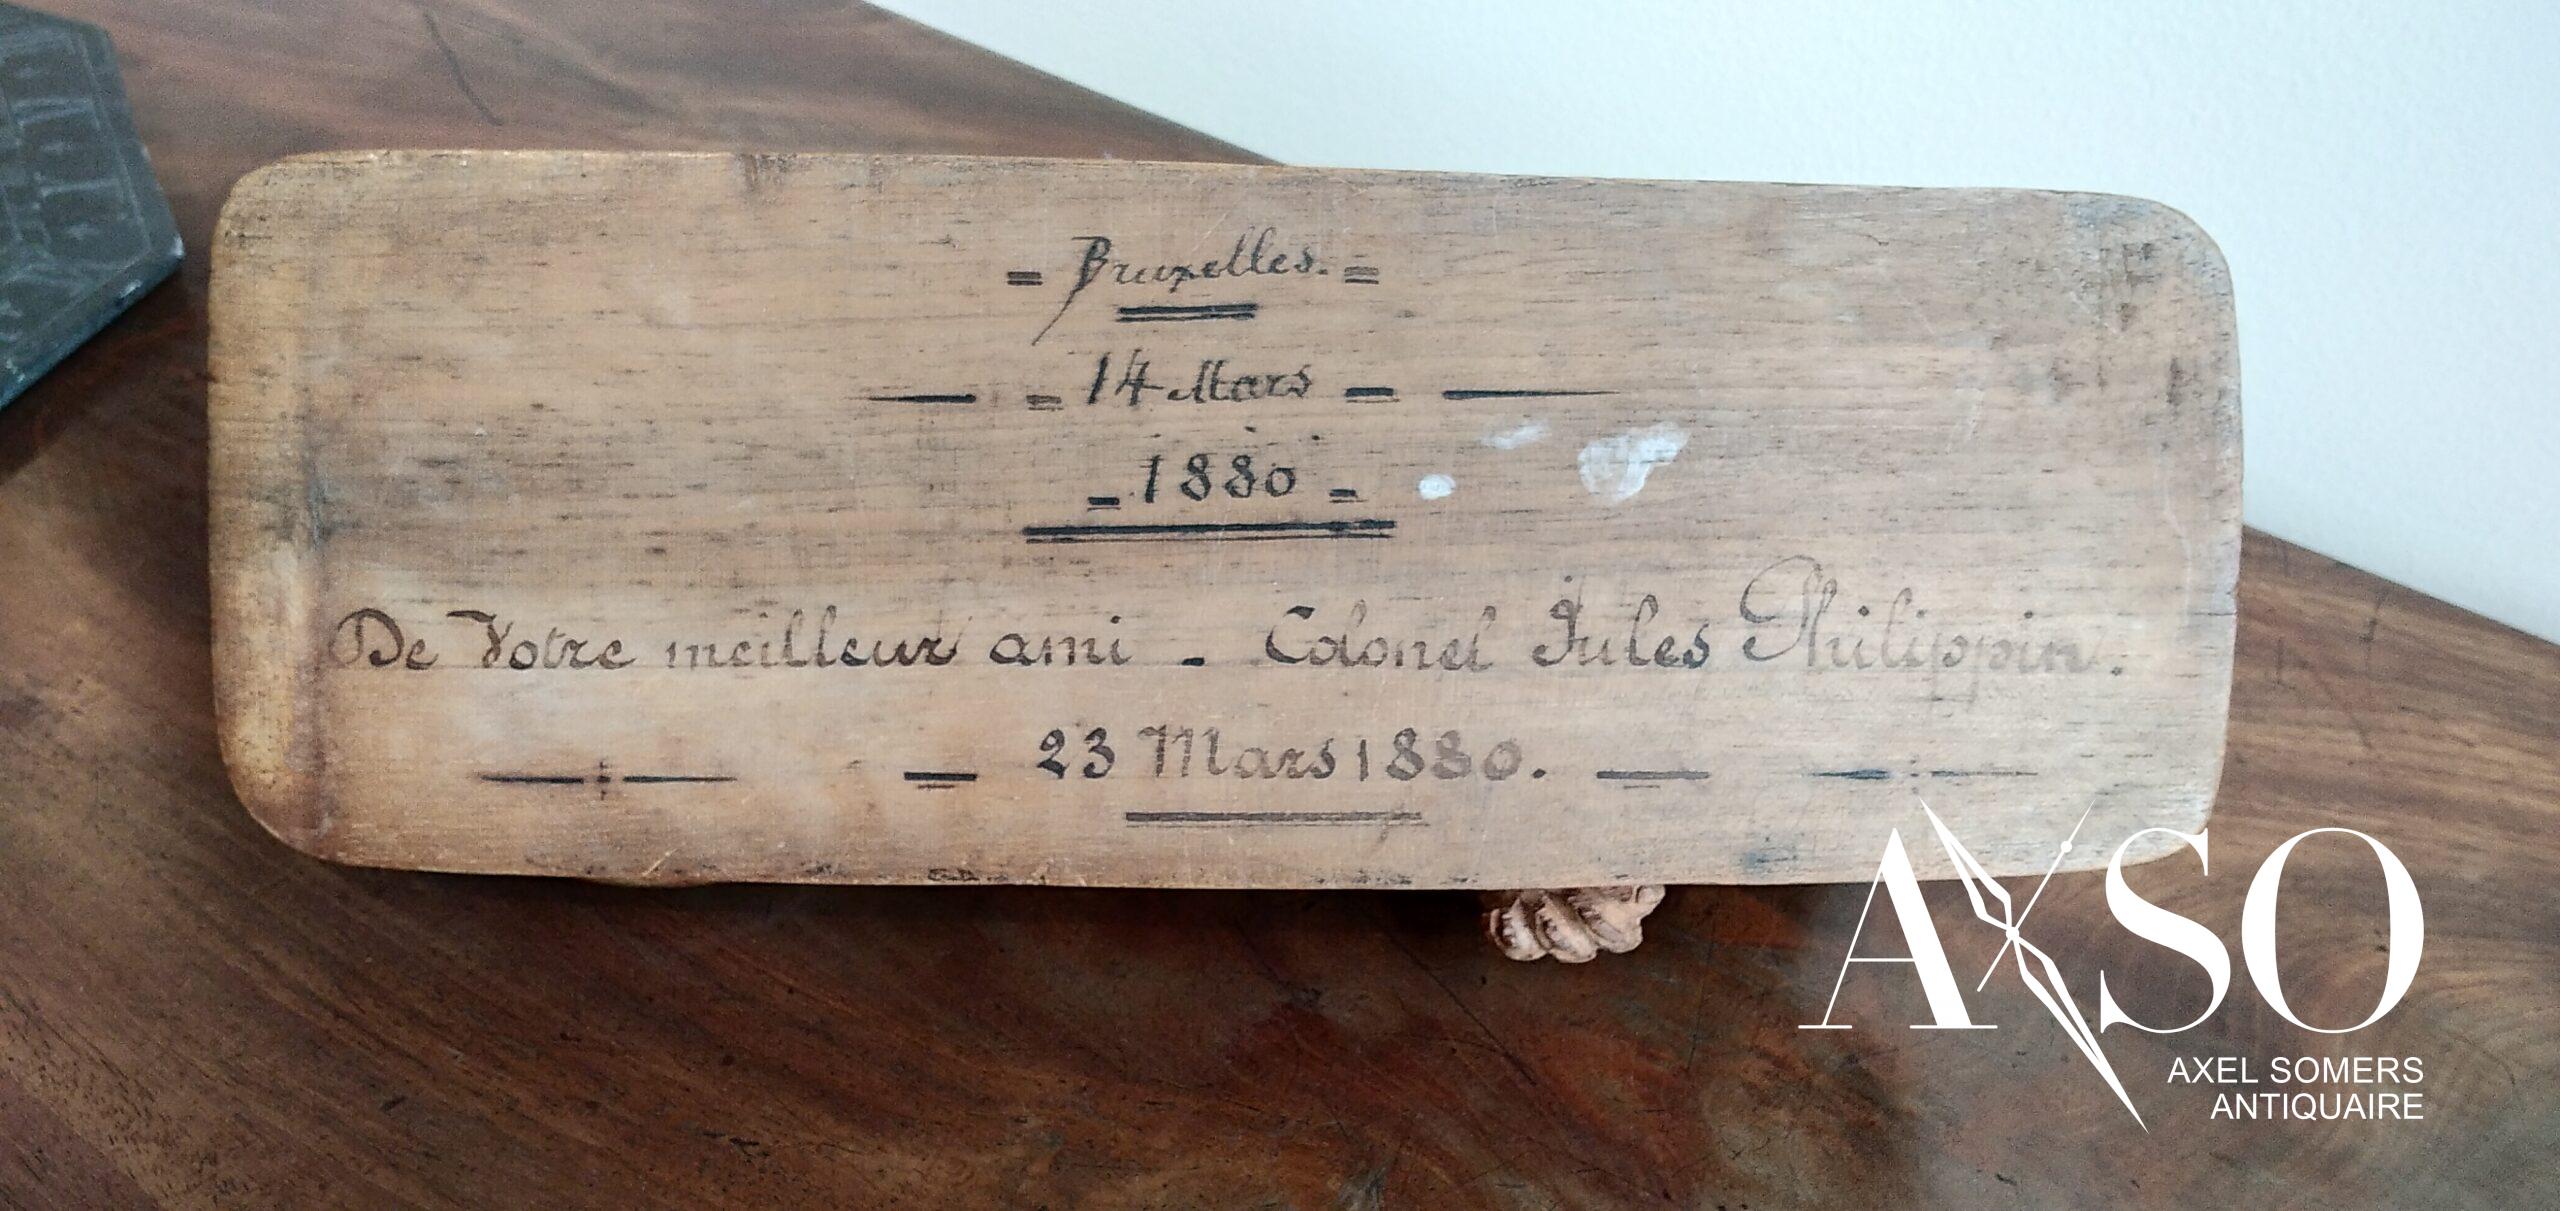 = Bruxelles. =
= 14 Mars =
= 1880 =
De Votre meilleur ami - Colonel Jules Philippin.
23 Mars 1880.
AXSO
AXEL SOMERS
ANTIQUAIRE